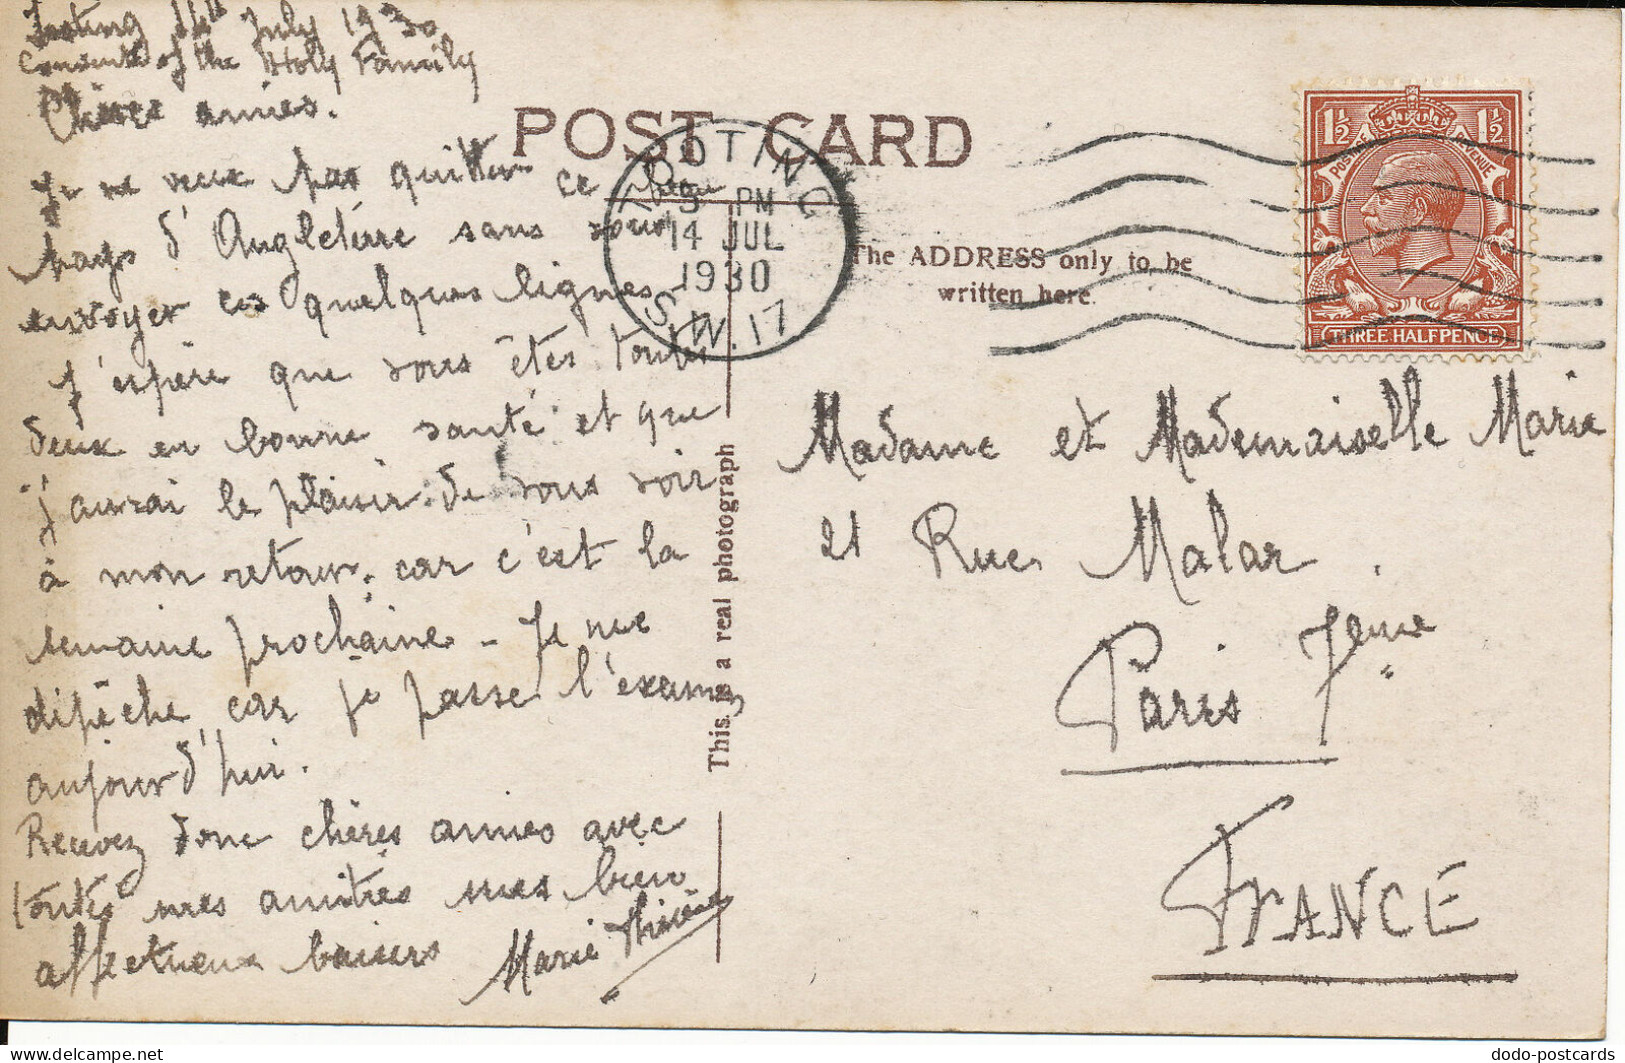 Tooting 14th July 1930
Convent of the Holy Family
Chères amies.
Je ne veux pas quitter ce beau
pays d'Angleterre sans vous
envoyer ces quelques lignes
J'espère que vous êtes toutes
deux en bonne santé et que
j'aurai le plaisir de vous voir
à mon retour. car c'est la
semaine prochaine - Je me
dépêche car je passe l'examen
aujourd'hui.
Recevez donc chères amies avec
toutes mes amitiés mes bien
affectueux baisers Marie Thérèse
POST CARD
TOOTING
5 PM
14 JUL
1930
S.W.17
The ADDRESS only to be
written here.
This is a real photograph
1½ 1½
POSTAGE REVENUE
THREE HALFPENCE
Madame et Mademoiselle Marie
21 Rue Malar.
Paris 7eme
FRANCE
dodo-postcards